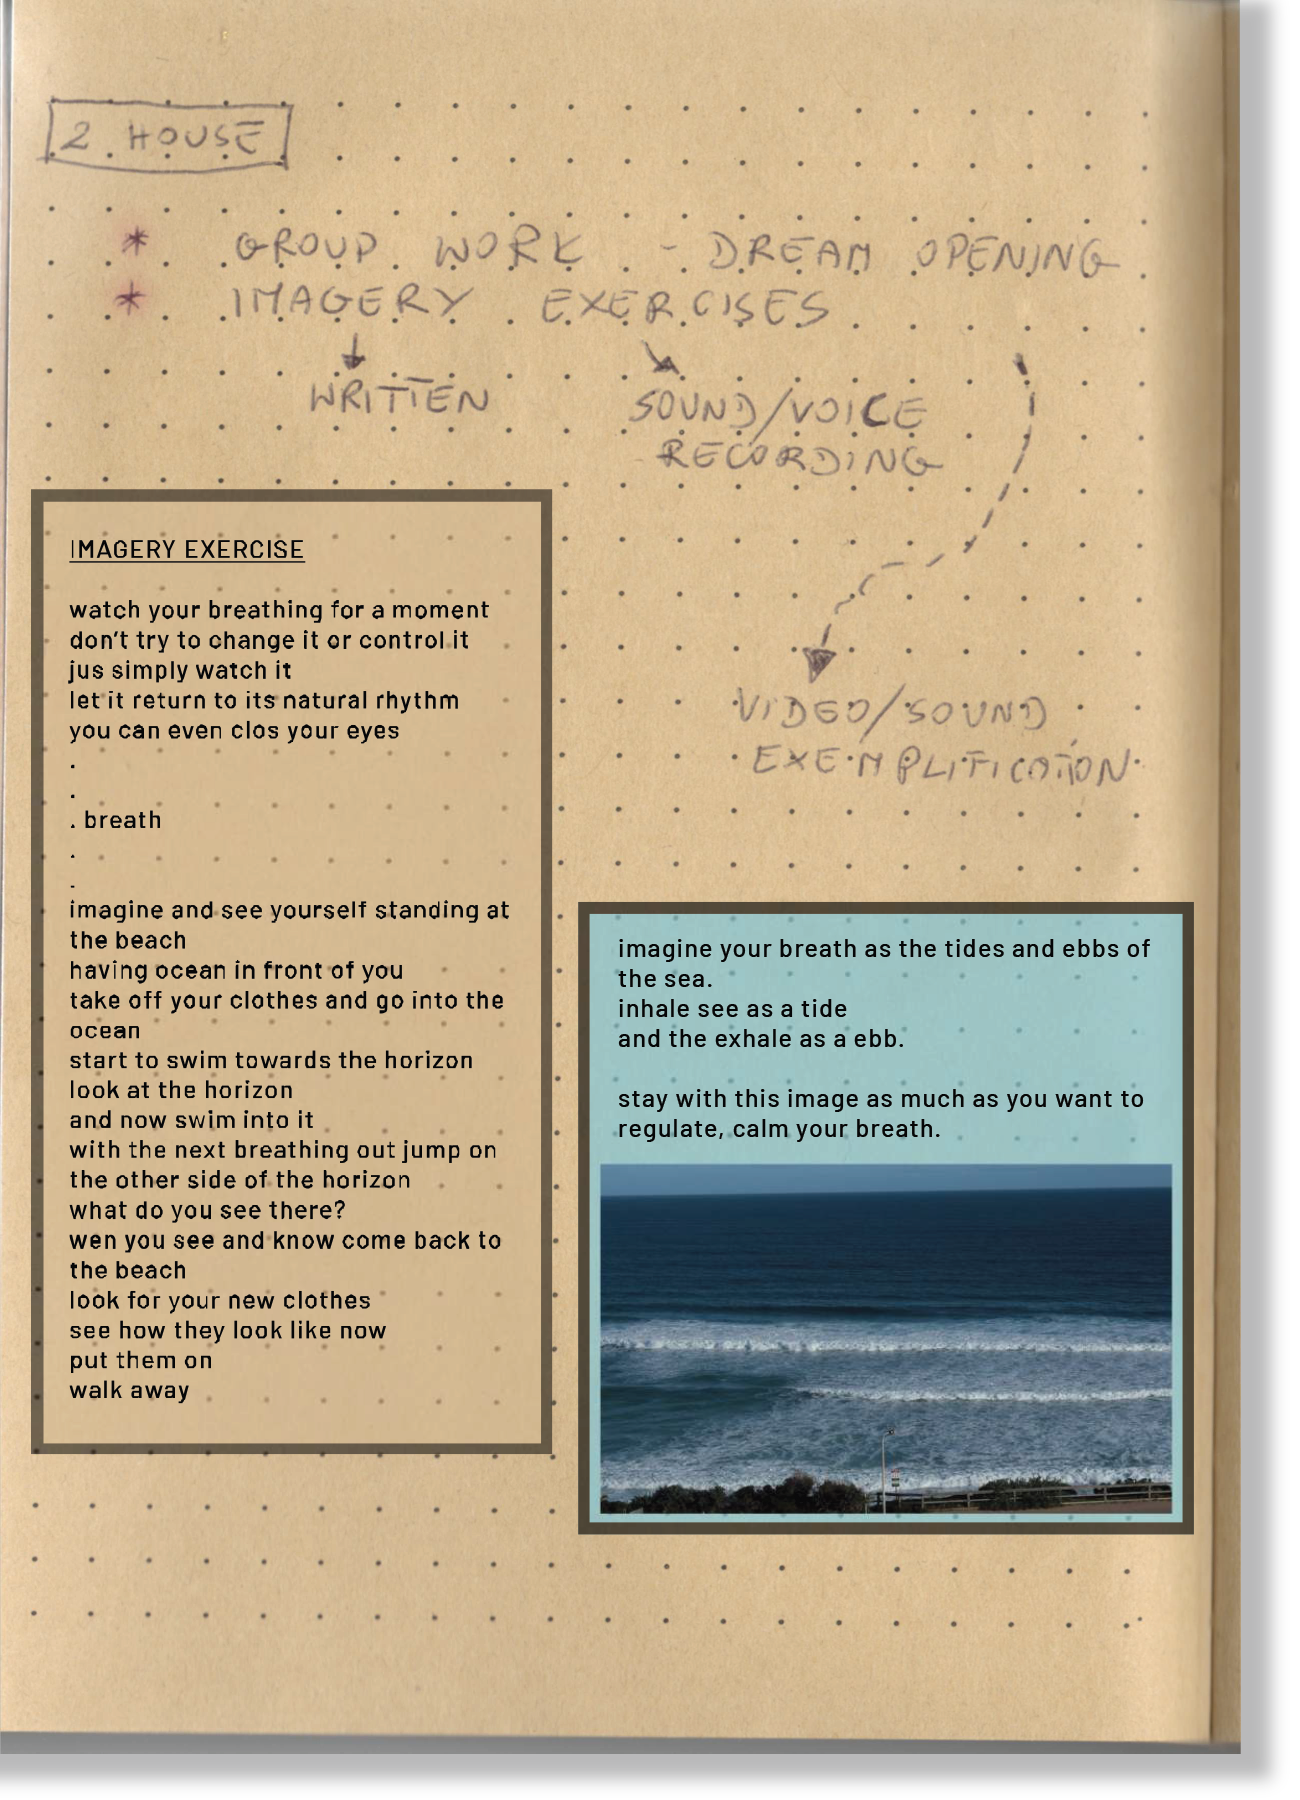 2 HOUSE
* GROUP WORK - DREAM OPENING
* IMAGERY EXERCISES
WRITTEN
SOUND/VOICE
RECORDING
VIDEO/SOUND
EXEMPLIFICATION
IMAGERY EXERCISE
watch your breathing for a moment
don't try to change it or control it
jus simply watch it
let it return to its natural rhythm
you can even clos your eyes
.
.
. breath
.
.
imagine and see yourself standing at
the beach
having ocean in front of you
take off your clothes and go into the
ocean
start to swim towards the horizon
look at the horizon
and now swim into it
with the next breathing out jump on
the other side of the horizon
what do you see there?
wen you see and know come back to
the beach
look for your new clothes
see how they look like now
put them on
walk away
imagine your breath as the tides and ebbs of
the sea.
inhale see as a tide
and the exhale as a ebb.
stay with this image as much as you want to
regulate, calm your breath.